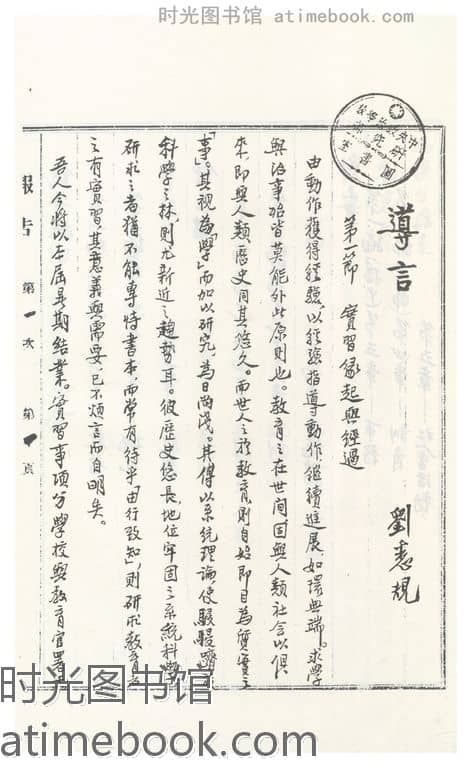 时光图书馆 atimebook.com
導言
劉悉規
第一節 實習緣起與經過
由動作獲得經驗，以經驗指導動作，繼續進展，如環無端。求學
與治事殆皆莫能外此原則也。教育之在世间，固與人類社会以俱
來，即與人類歷史同其悠久。而世人之於教育，則自始即目為實寔之
「事」。其視為「學」而加以研究，為日尚浅。其傅以系統理論，使駸駸躋
科學之林，則尤新近之趨勢耳。彼歷史悠長，地位牢固之系統科學，
研求之者猶不能專恃書本，而常有待乎「由行致知」，則研求教育者
之有實習，其意義與需要，已不煩言而自明矣。
吾人今將以本屆星期結業。實習事項分學校與教育官署
報告 第一次 第1頁
时光图书馆
atimebook.com